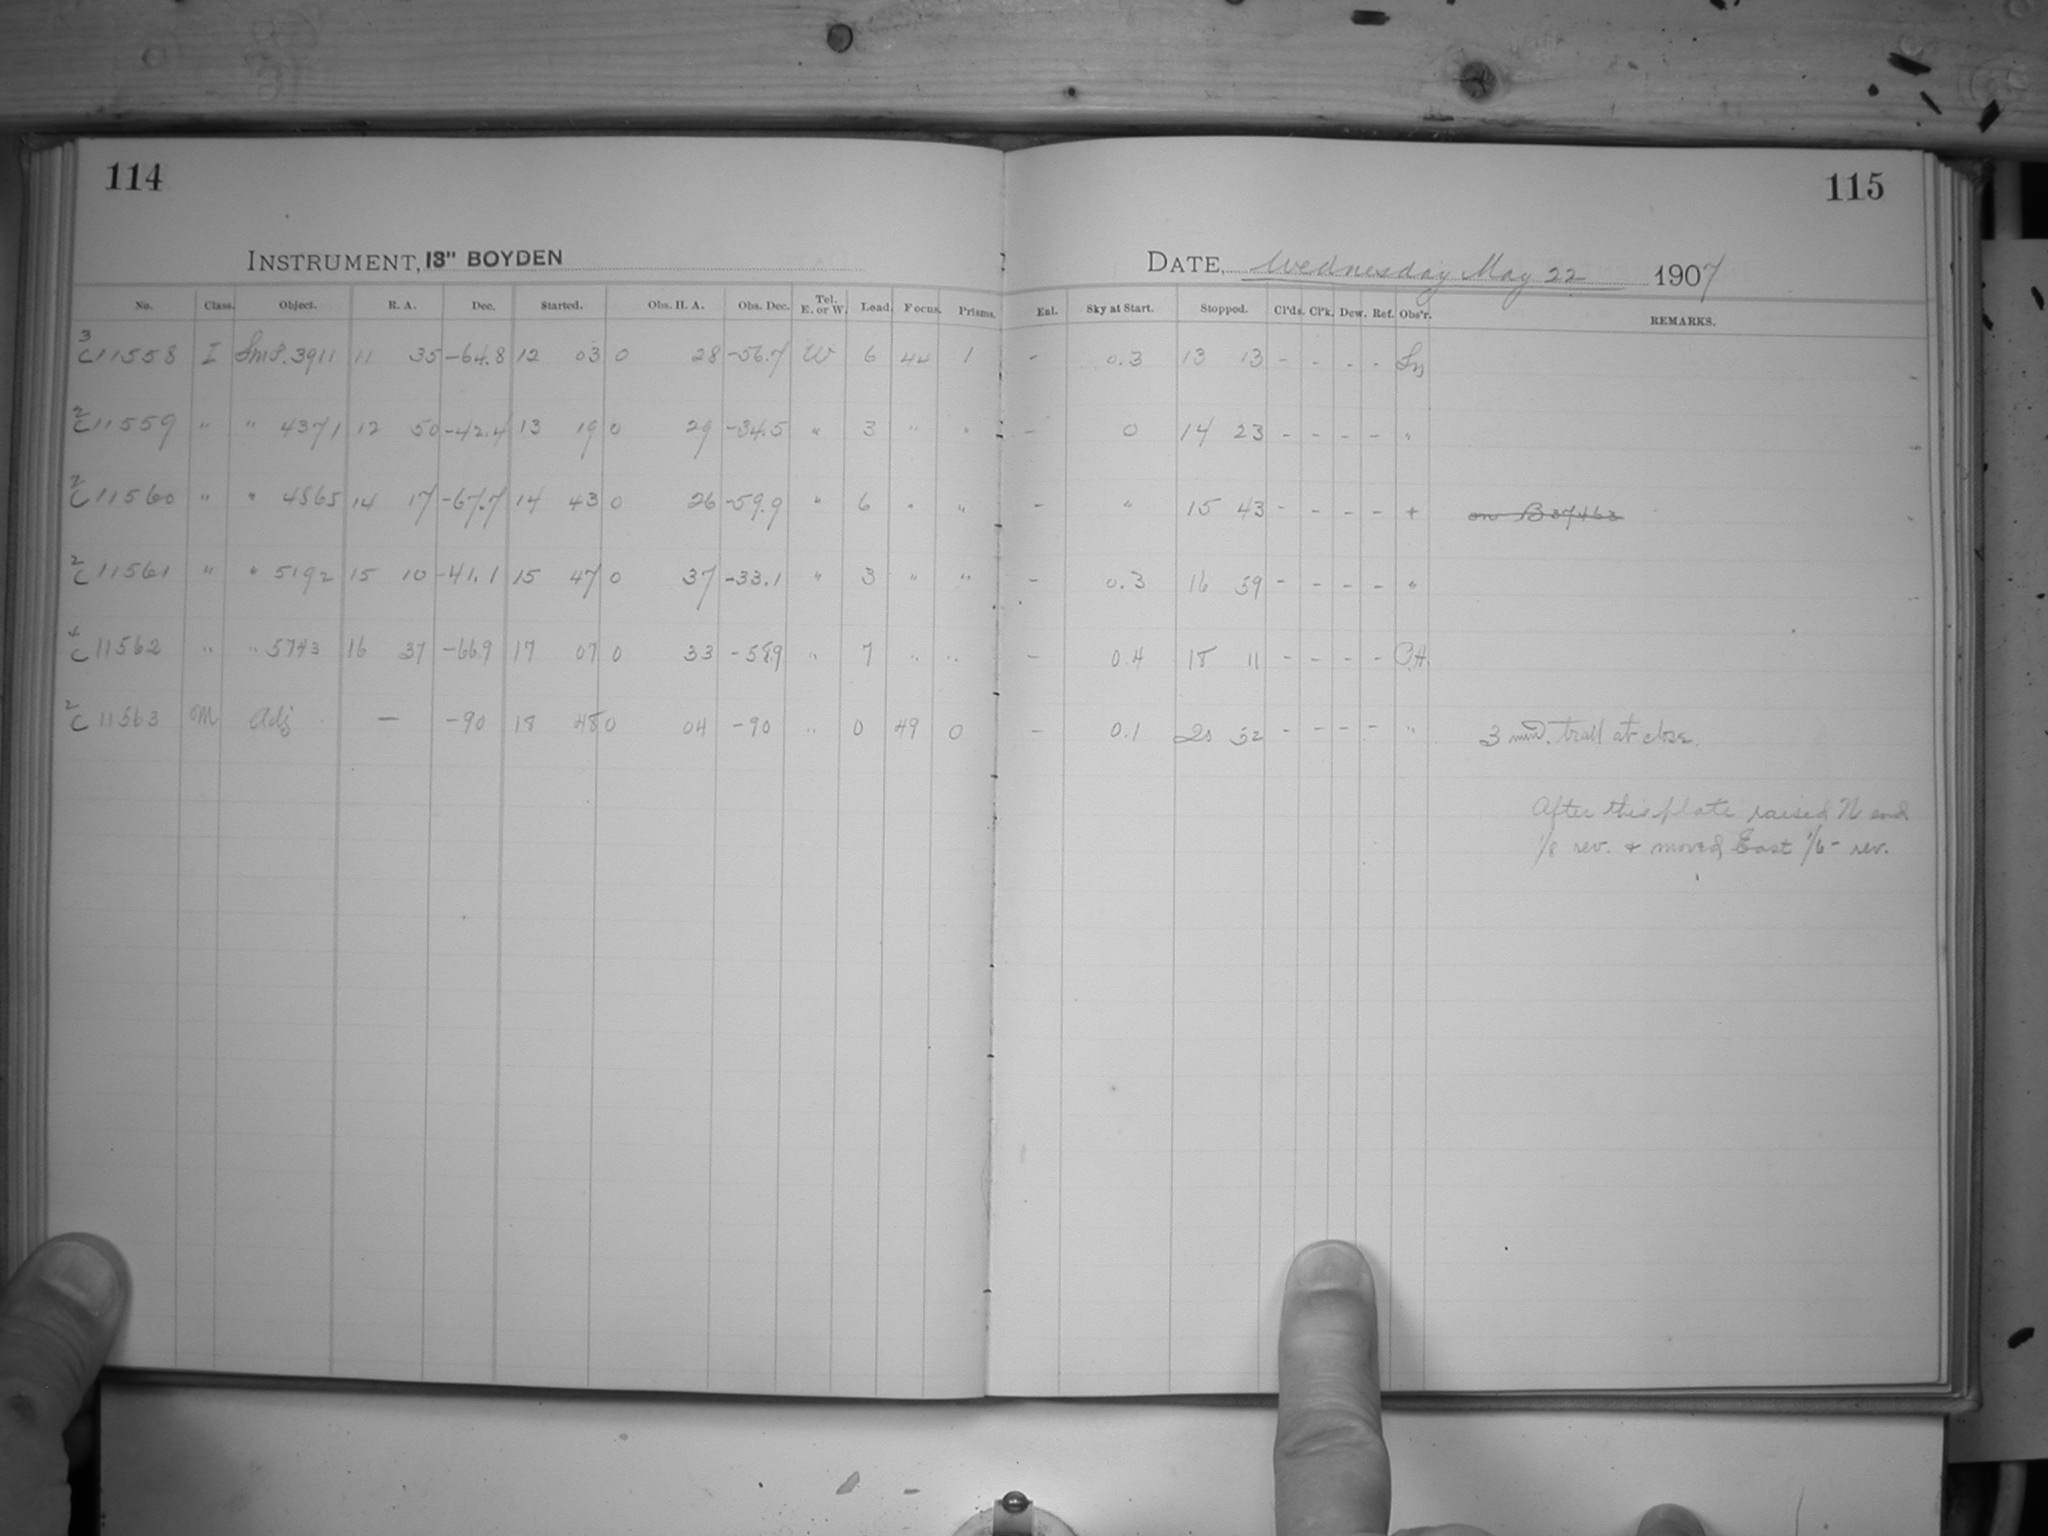 114
115
INSTRUMENT, 13" BOYDEN
DATE, Wednesday May 22 1907
No. Class. Object. R. A. Dec. Started. Obs. H. A. Obs. Dec. Tel. E. or W. Load. Focus. Prisms. Ent. Sky at Start. Stopped. Cl'ds. Cl'k. Dew. Ref. Obs'r. REMARKS.
3 C11558 I 3911 11 35 -64.8 12 03 0 28 -56.7 W 6 44 1 - 0.3 13 13 - - - -
2 C11559 " " 4371 12 50 -42.4 13 19 0 29 -34.5 " 3 " " - 0 14 23 - - - - "
2 C11560 " " 4865 14 17 -67.7 14 43 0 26 -59.9 " 6 " " - " 15 43 - - - - + on B37463
2 C11561 " " 5192 15 10 -41.1 15 47 0 37 -33.1 " 3 " " - 0.3 16 59 - - - - "
4 C11562 " " 5743 16 37 -66.9 17 07 0 33 -58.9 " 7 " " - 0.4 18 11 - - - -
2 C11563 M Adj — -90 18 48 0 04 -90 " 0 49 0 - 0.1 20 32 - - - - " 3 min. trail at close.
After this plate raised N end
1/8 rev. + moved East 1/6- rev.